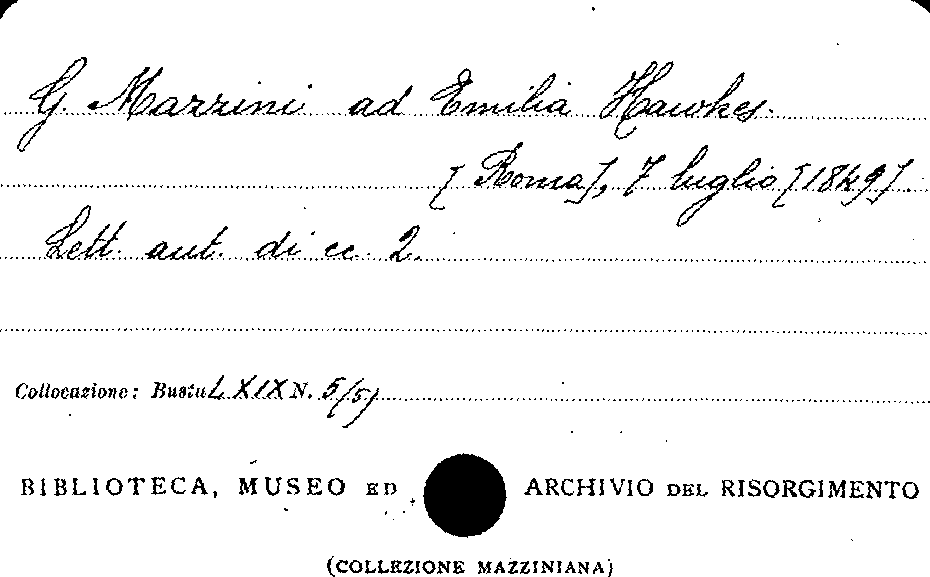 G. Mazzini ad Emilia Hawkes.
[Roma], 7 luglio [1849].
Lett. aut. di cc. 2.
Collocazione: Busta LXIX N. 5/5)
BIBLIOTECA, MUSEO ED ARCHIVIO DEL RISORGIMENTO
(COLLEZIONE MAZZINIANA)